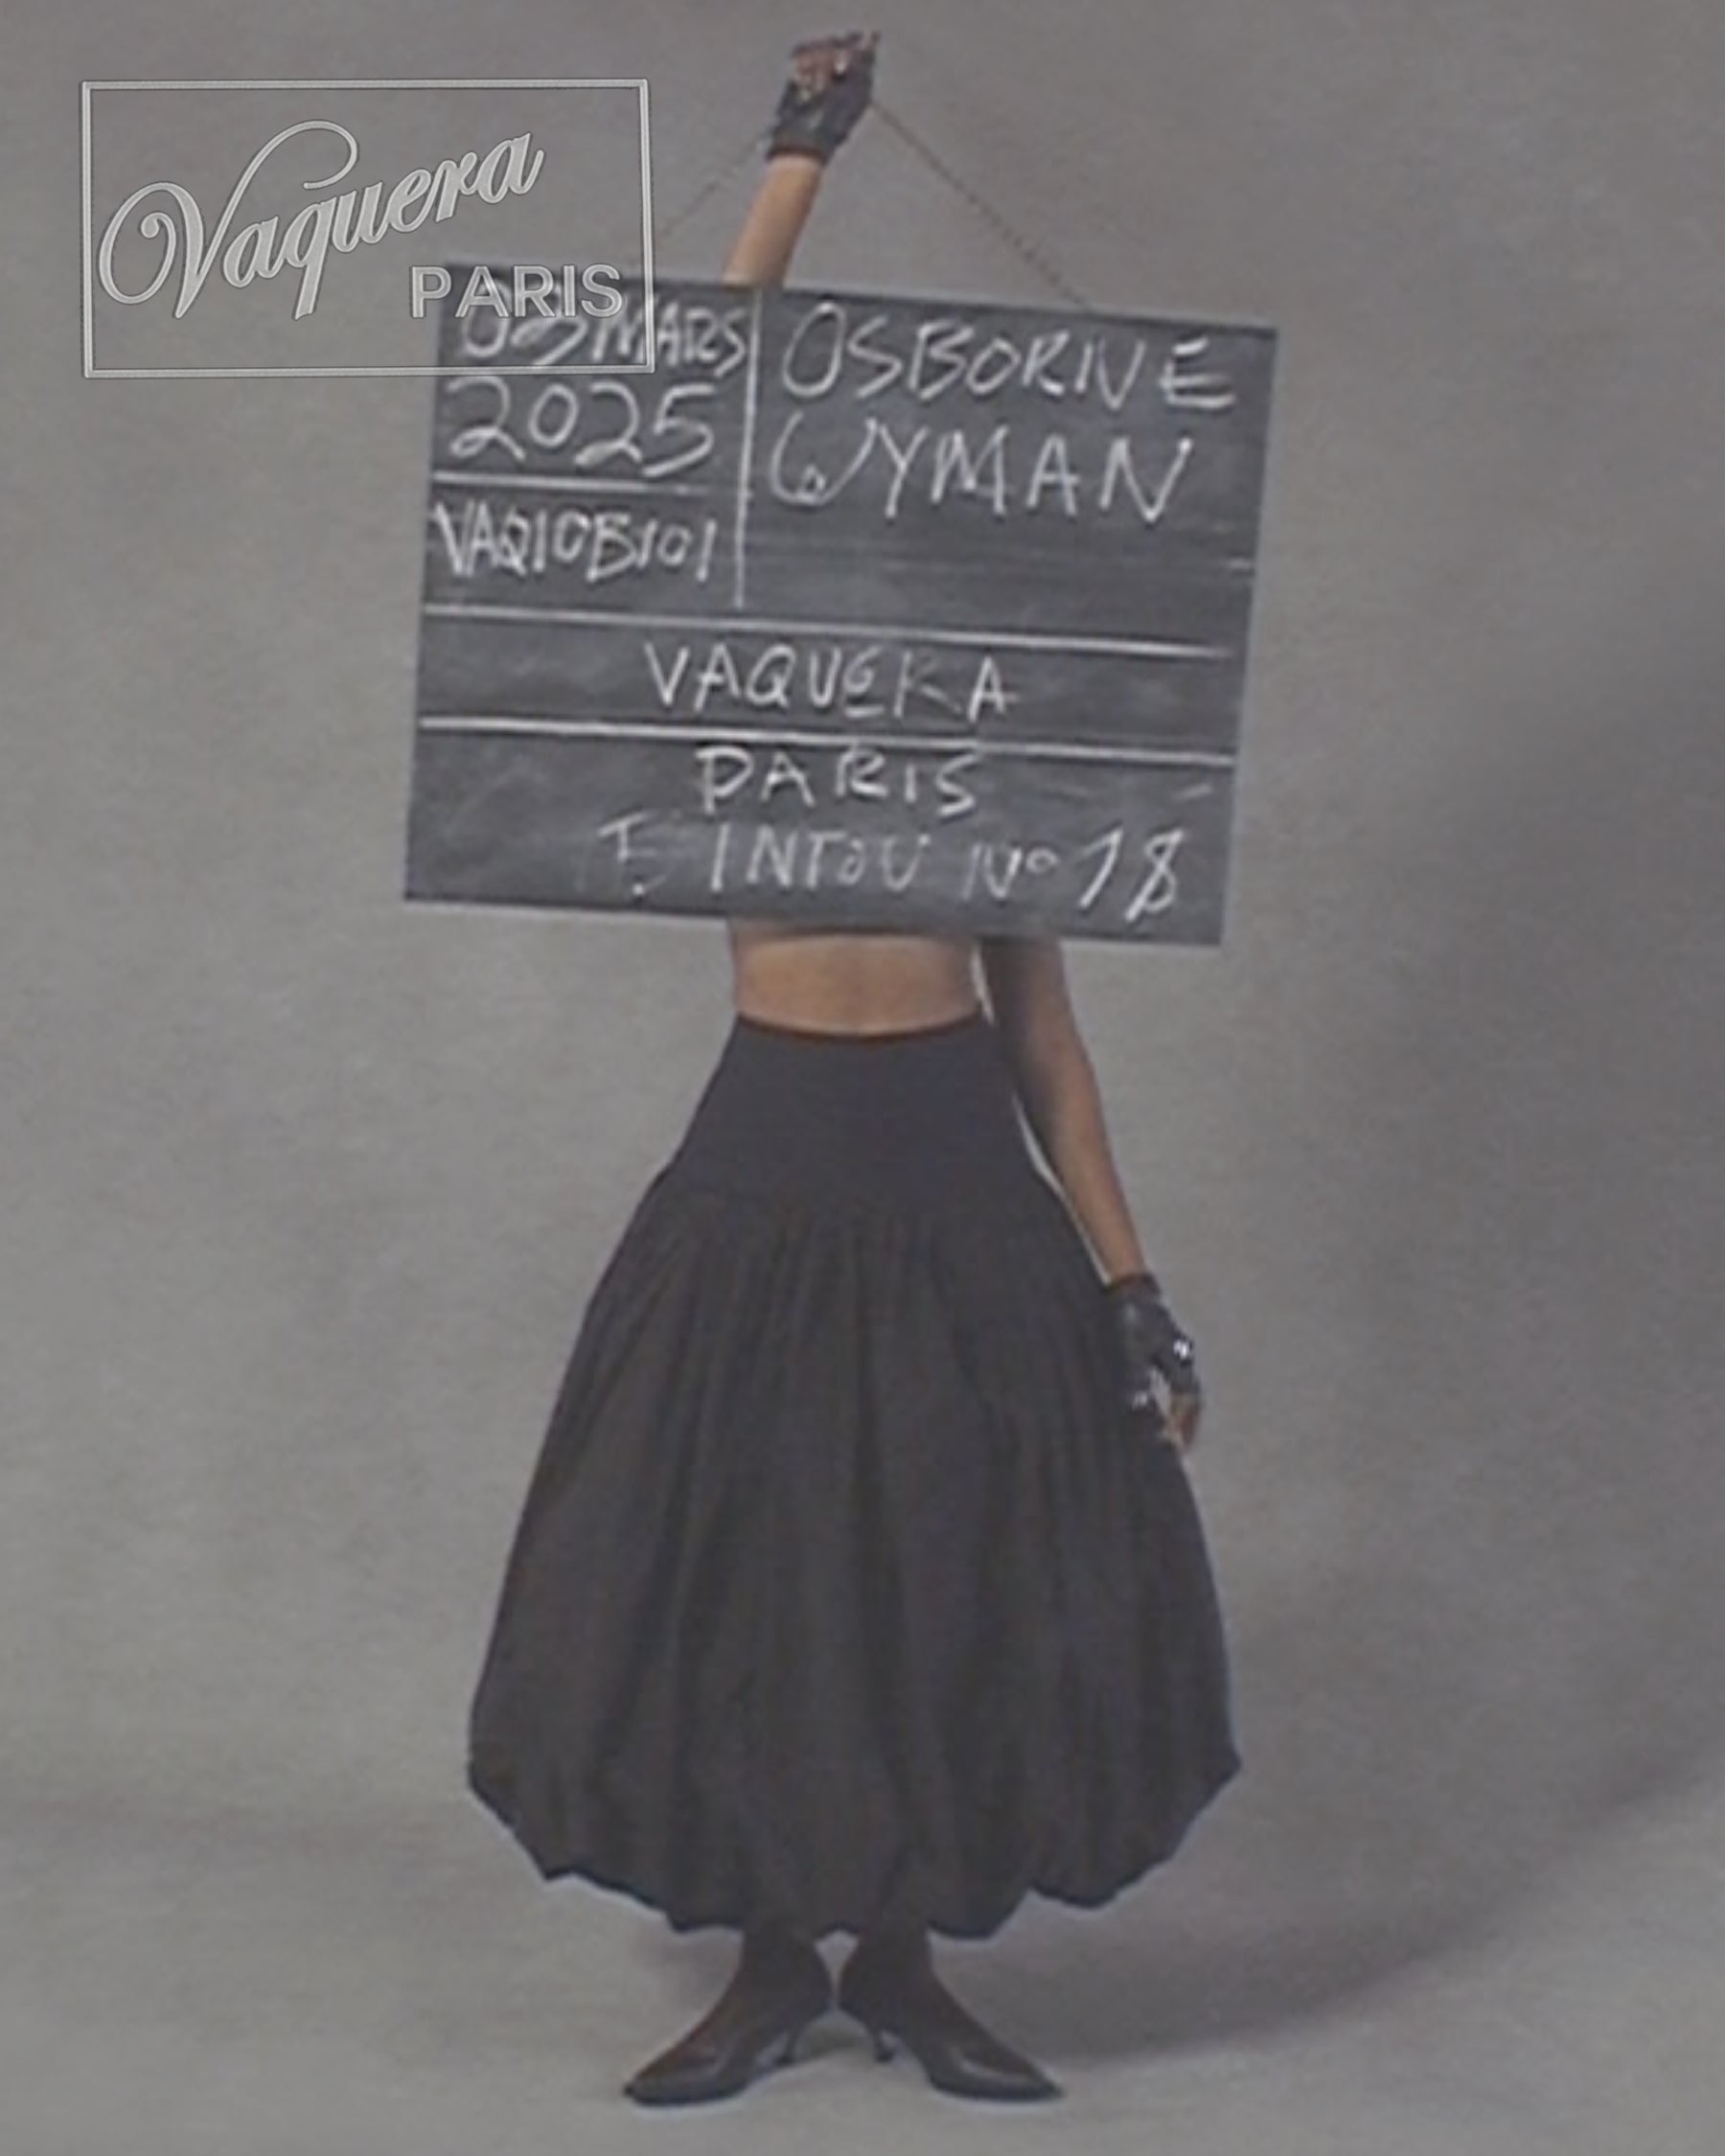 Vaquera
PARIS
03 MARS
2025
VAQ10B101
OSBORNE
WYMAN
VAQUERA
PARIS
INTOU Nº 18